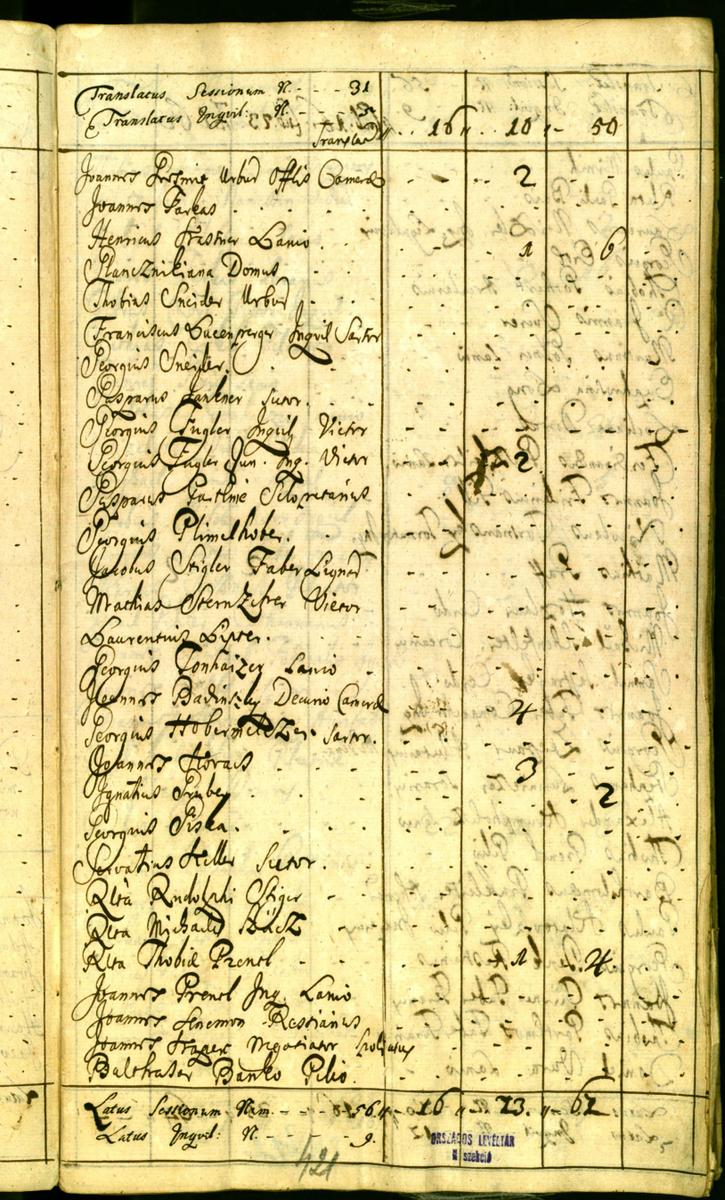 Translatus Sessionum N. - - - 31
Translatus Inqvil: N. - - -
Translat , . . 16 „ . . 10 „ - 50
Joannes Urbur Offlis Cameral - - - 2 - -
Joannes Farkas
Henricus Frastner Lanio - - 1 - 6
Plancznikiana Domus
Thobias Sneider Urbur
Franciscus Lucenperger Inqvil Sartor
Georgius Sneider
Gasparus Jankner Sutor.
Georgius Fugler Inqvil Vietor
Georgius Fugler Jun. Inq. Vietor - - 2
Gasparus
Georgius Plimelhober.
Jacobus Stigler Faber Lignar
Mathias Sternzifrer Vietor
Laurentius Lipter.
Georgius Tonhaizer Lanio
Joannes Badinszky Decurio Cameral - - 4
Georgius Hobermelczer Sartor.
Joannes Horacs - - 3
Ignatius Gruber - - 2
Georgius Piska.
Servatius Heller Sutor.
Rlta Rudolphi Stiger
Rlta Michael
Rlta Thobiæ Prentl - - 1 - 4
Joannes Prentl Inq. Lanio
Joannes Restianus
Joannes Trager Negotiator
Balthasar Banko Pileo.
Latus Sessionum Num. - - - 56 „ - 16 „ - 23. „ - 62
Latus Inqvil: N. - - - 9.
421
ORSZÁGOS LEVÉLTÁR
szekció